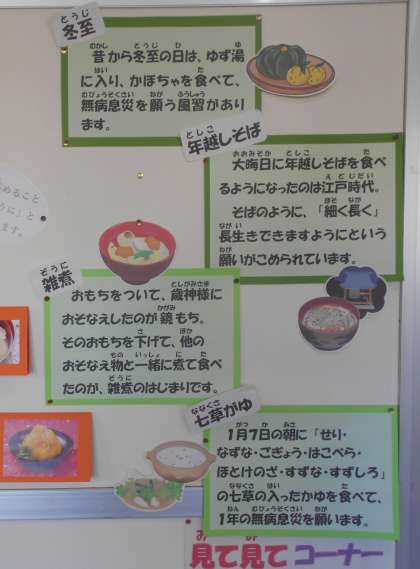 冬至
昔から冬至の日は、ゆず湯
に入り、かぼちゃを食べて、
無病息災を願う風習があり
ます。
年越しそば
大晦日に年越しそばを食べ
るようになったのは江戸時代。
そばのように、「細く長く」
長生きできますようにという
願いがこめられています。
雑煮
おもちをついて、歳神様に
おそなえしたのが鏡もち。
そのおもちを下げて、他の
おそなえ物と一緒に煮て食べ
たのが、雑煮のはじまりです。
七草がゆ
1月7日の朝に「せり・
なずな・ごぎょう・はこべら・
ほとけのざ・すずな・すずしろ」
の七草の入ったかゆを食べて、
1年の無病息災を願います。
見て見てコーナー